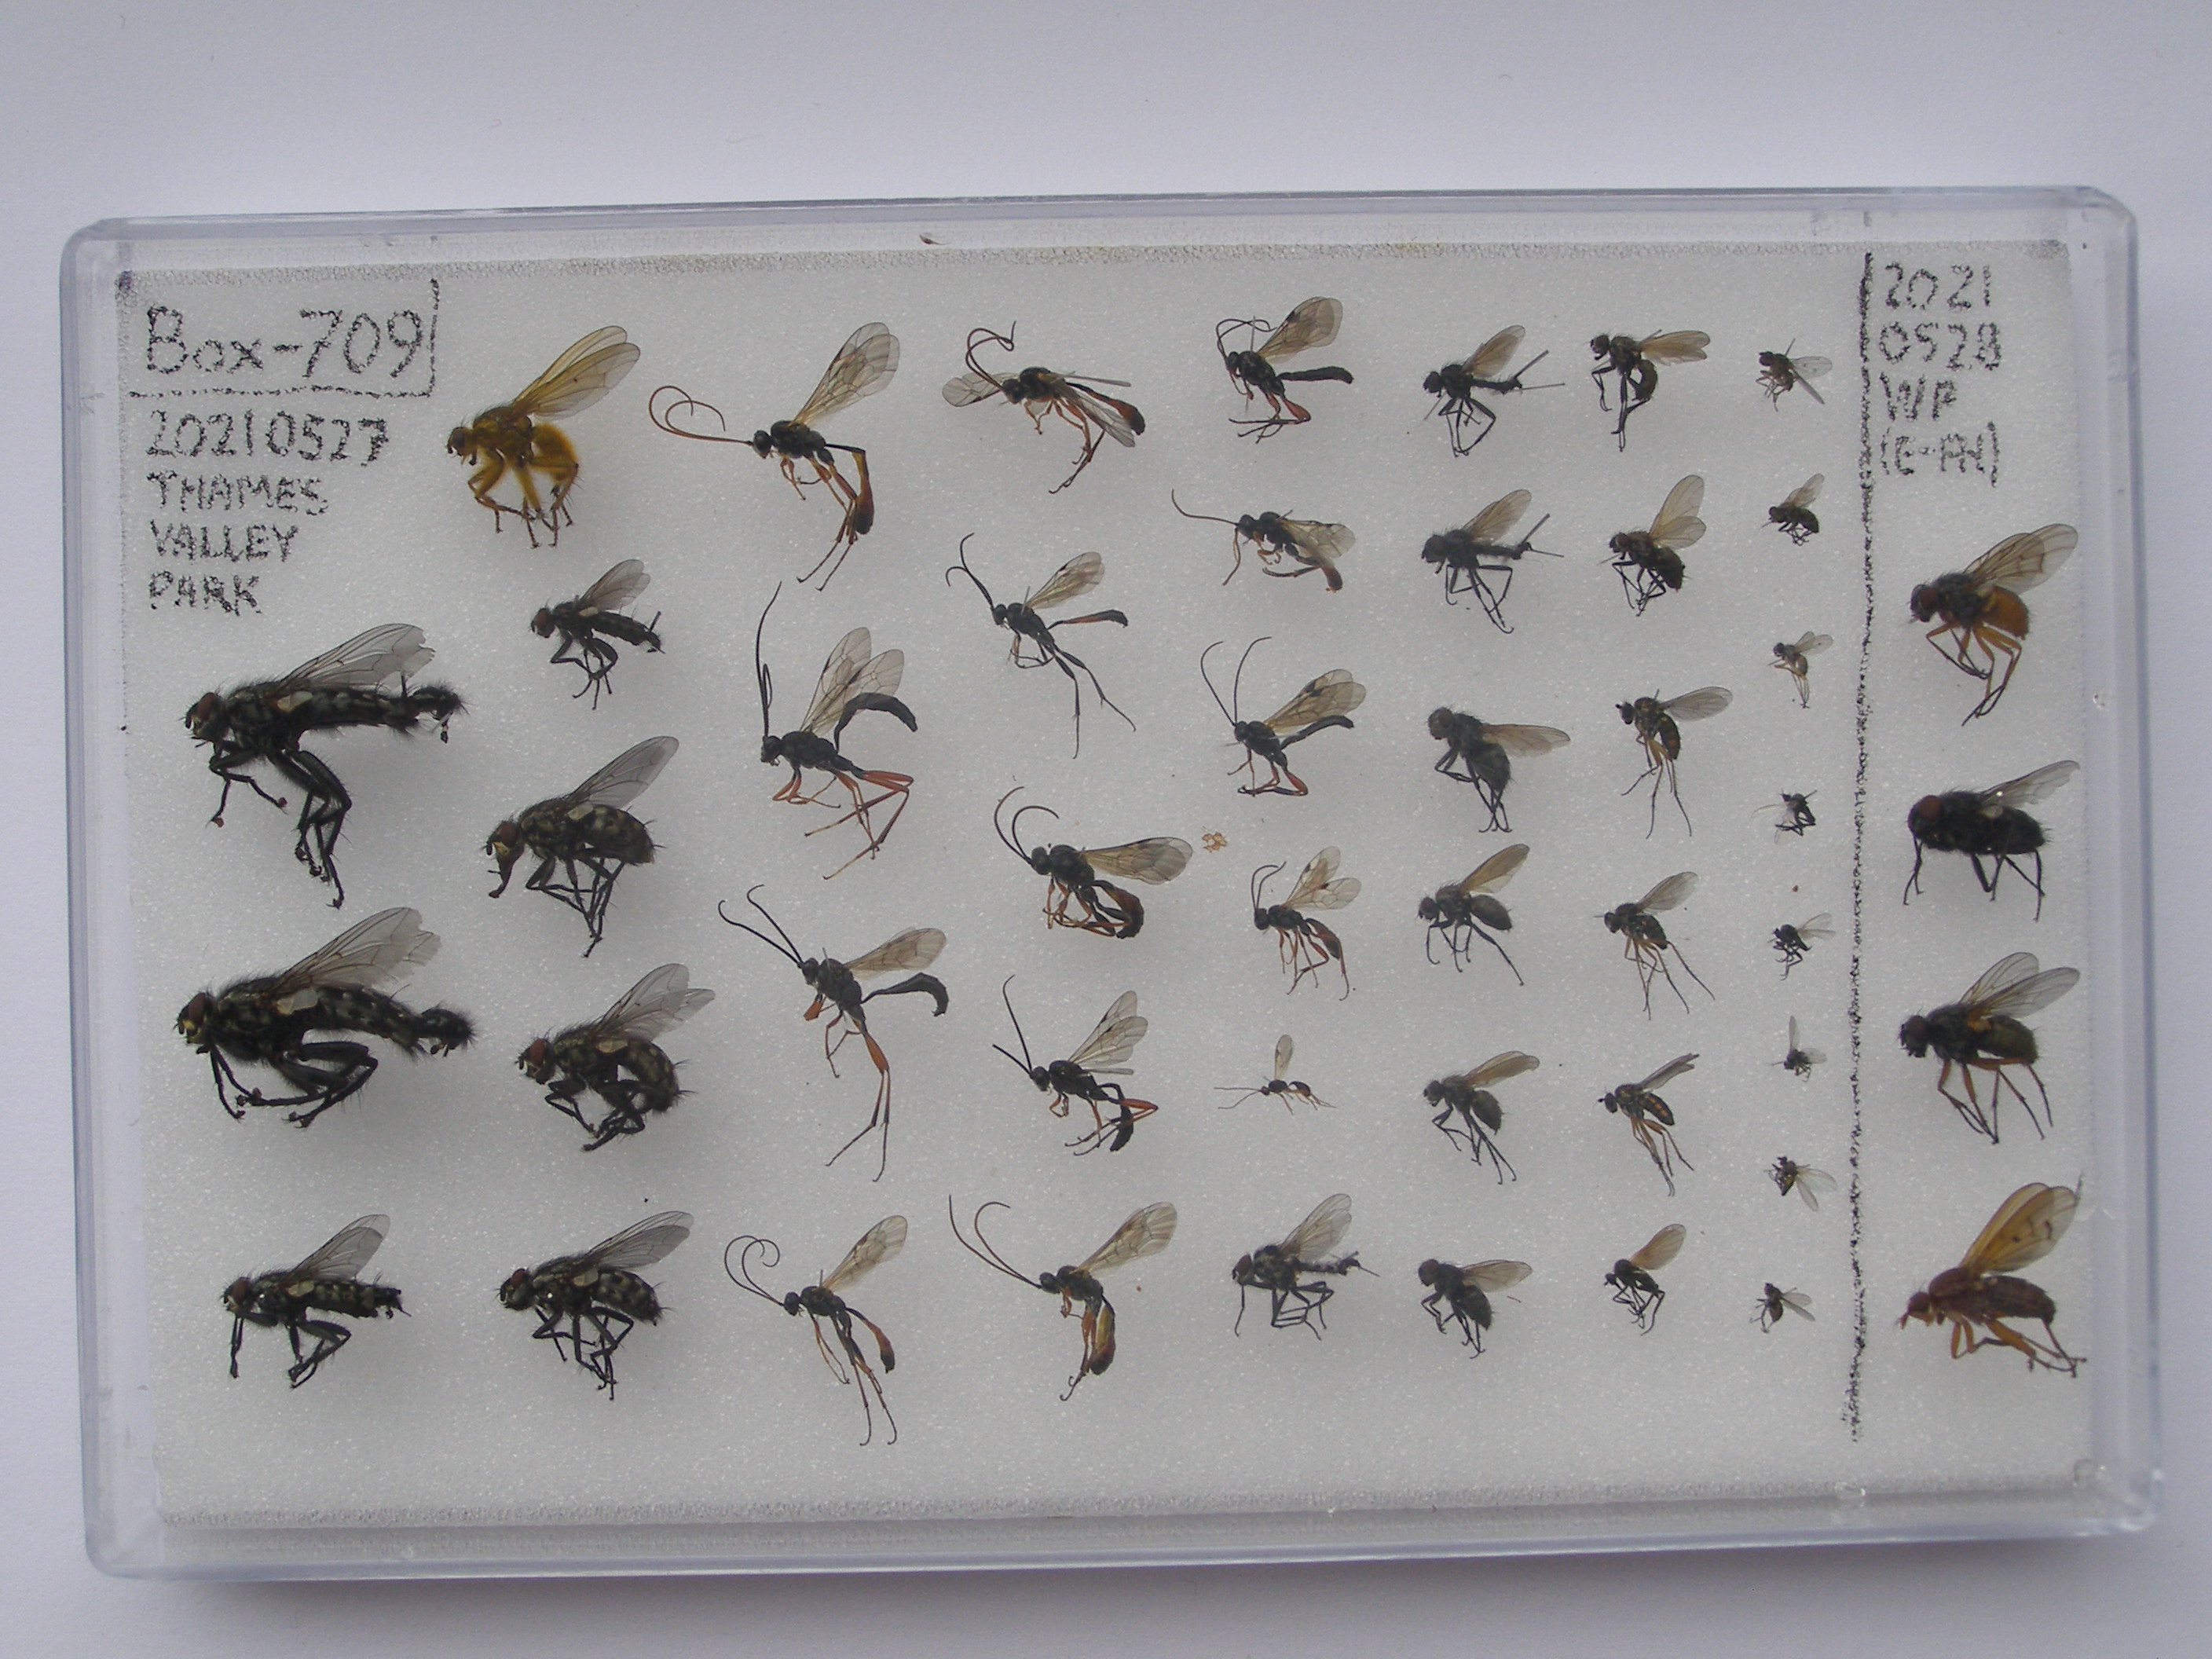 Box-709
20210527
THAMES
VALLEY
PARK
2021
0528
WP